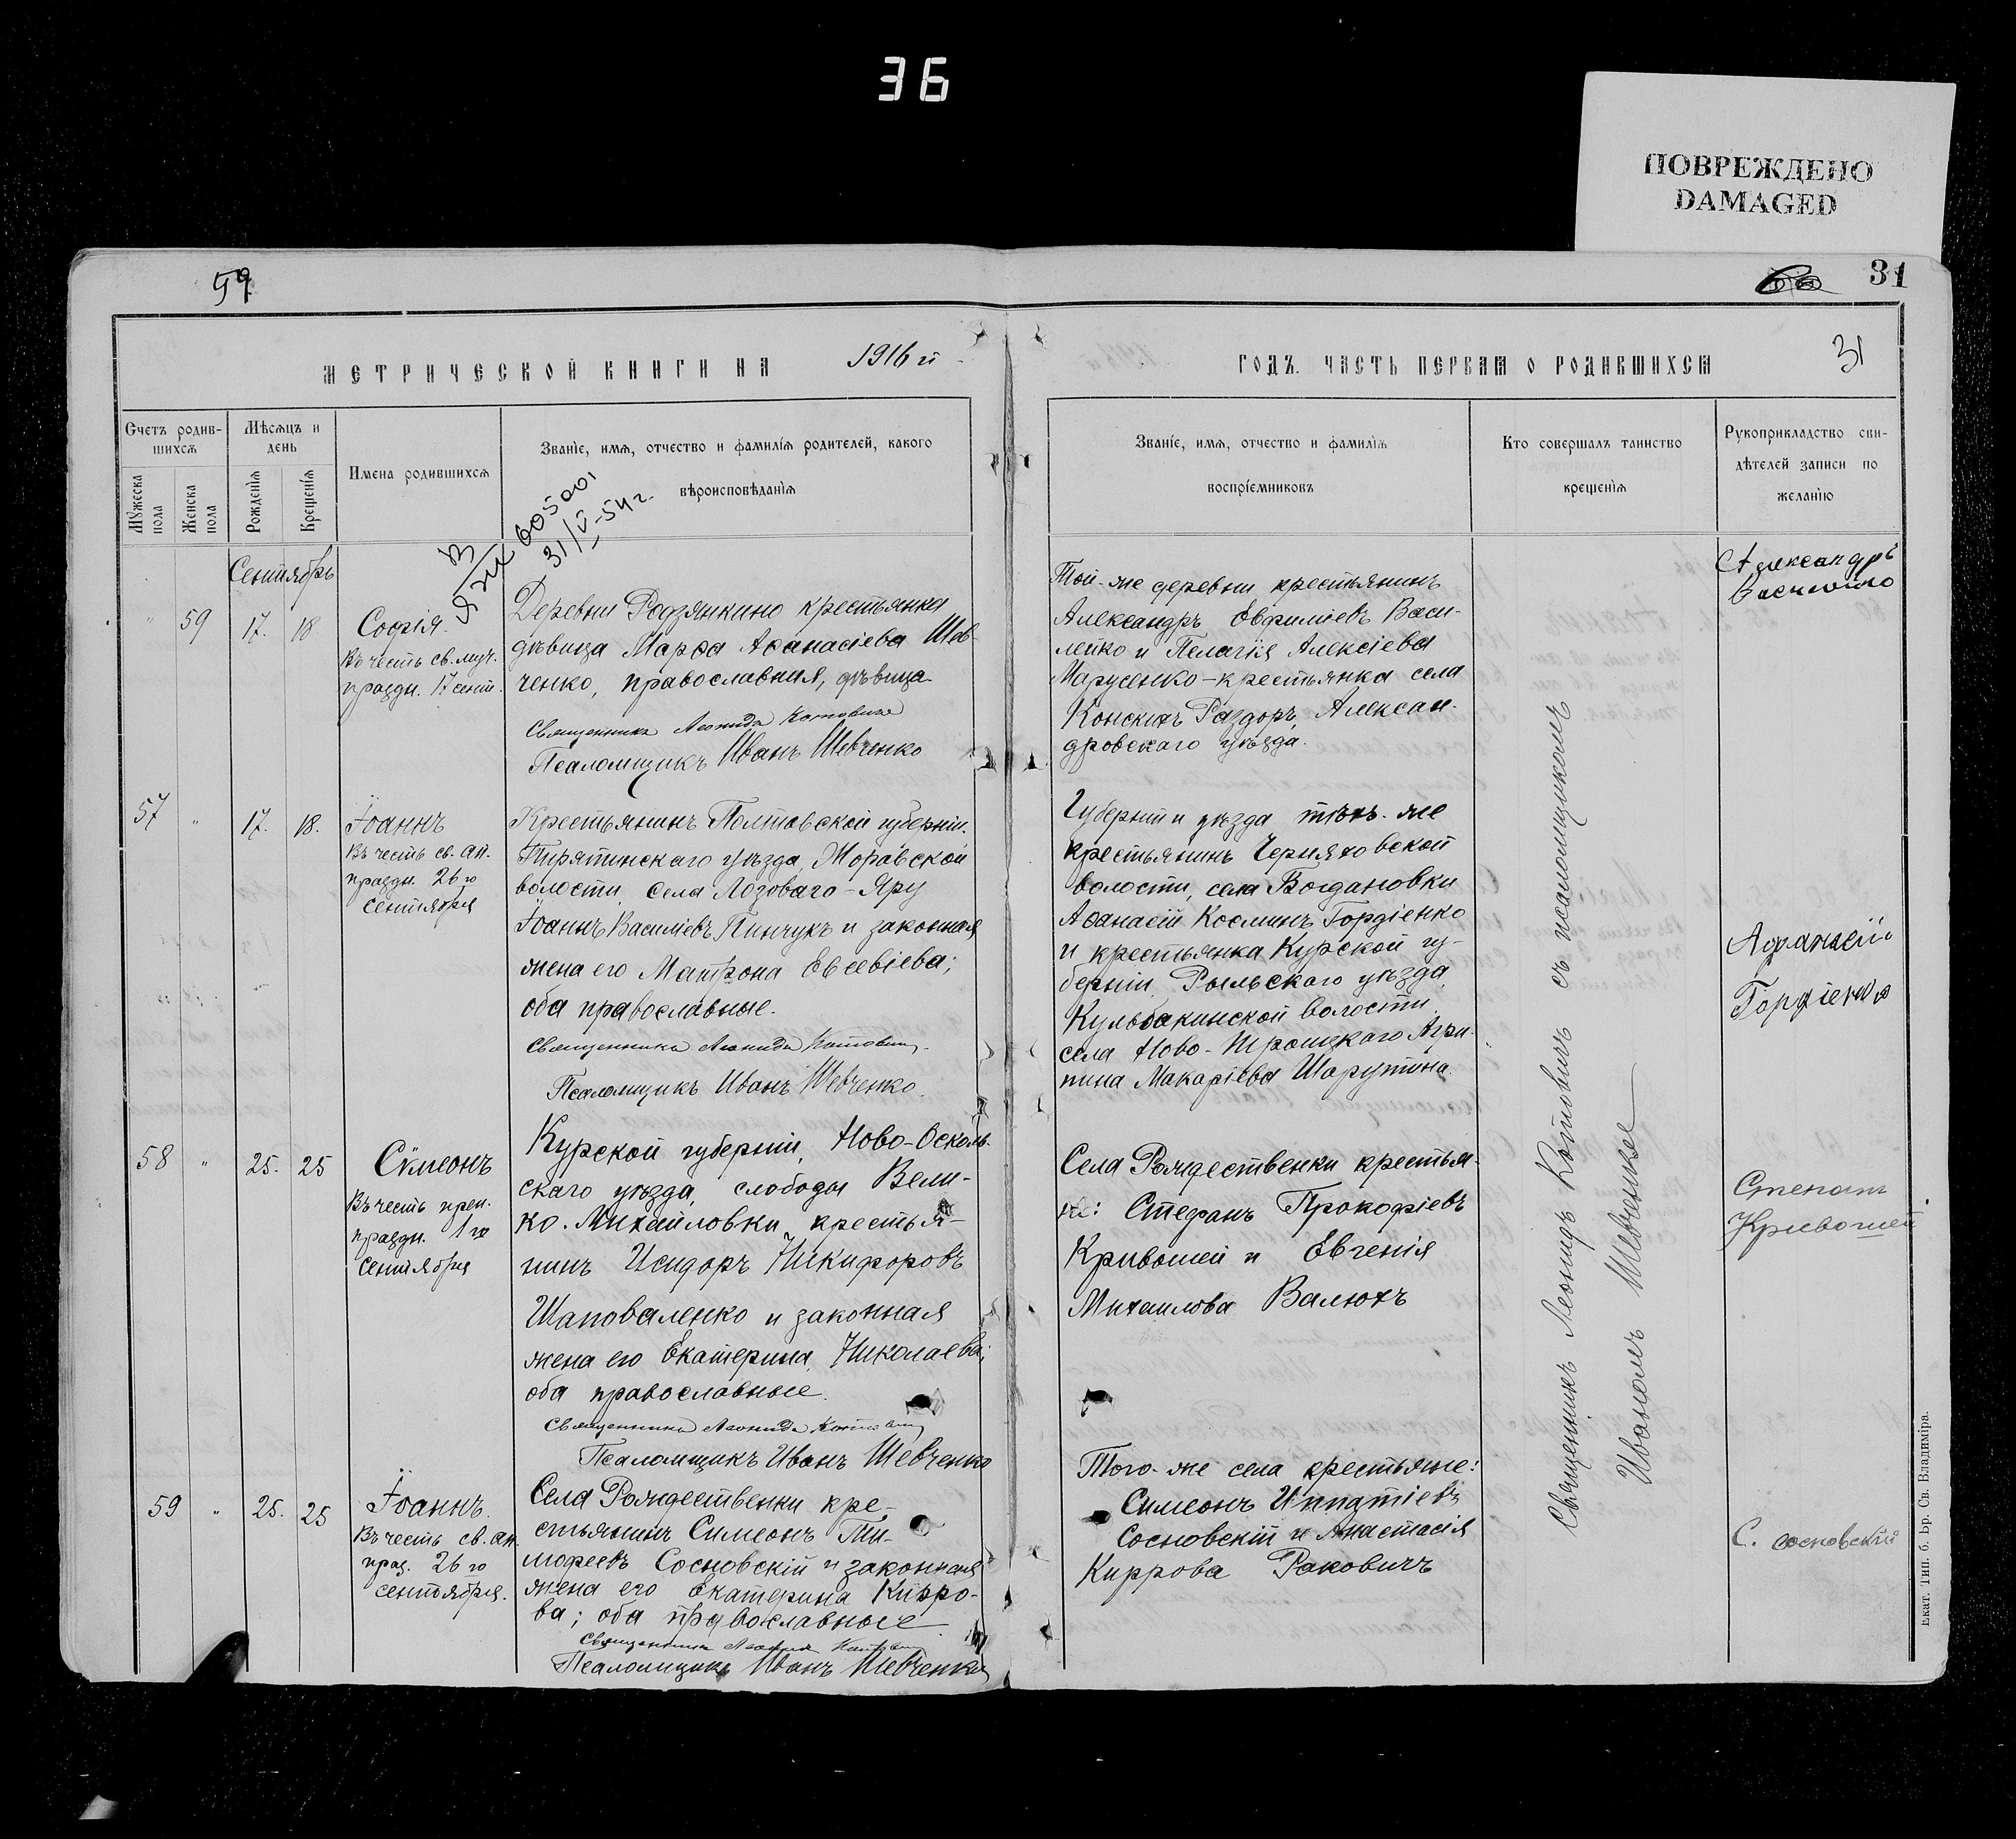 36
ПОВРЕЖДЕНО
DAMAGED
59
31
МЕТРИЧЕСКОЙ КНИГИ НА 1916 й
ГОДЪ. ЧАСТЬ ПЕРВАЯ О РОДИВШИХСЯ
31
Счетъ родив-
шихся
Мужеска пола
Женска пола
Мѣсяцъ и
день
Рожденія
Крещенія
Имена родившихся
Званіе, имя, отчество и фамилія родителей, какого
вѣроисповѣданія
Званіе, имя, отчество и фамилія
воспріемниковъ
Кто совершалъ таинство
крещенія
Рукоприкладство сви-
дѣтелей записи по
желанію
605001
31/V-54 г.
Сентябрь
" 59 17. 18
Софія.
Въ честь св. муч.
праздн. 17 сент.
Деревни Родзянкино крестьянка
дѣвица Марѳа Аѳанасіева Шев-
ченко, православная, дѣвица
Священникъ Леонидъ Котовичъ
Псаломщикъ Иванъ Шевченко
Той-же деревни крестьянинъ
Александръ Евфиміевъ Васи-
лейко и Пелагія Алексіева
Марусенко-крестьянка села
Конскихъ Раздоръ, Алексан-
дровскаго уѣзда.
Александръ
57 " 17. 18.
Іоаннъ
Въ честь св. ап.
праздн. 26 го
сентября
Крестьянинъ Полтавской губерніи.
Пирятинскаго уѣзда, Моравской
волости, села Лозоваго-Яру
Іоаннъ Василіевъ Пинчукъ и законная
жена его Матрона Евсевіева;
оба православные.
Священникъ Леонидъ Котовичъ.
Псаломщикъ Иванъ Шевченко.
Губерніи и уѣзда тѣхъ-же
крестьянинъ Черняховской
волости, села Богдановки
Аѳанасій Косминъ Гордіенко
и крестьянка Курской гу-
берніи, Рыльскаго уѣзда,
Кульбакинской волости,
села Ново-Троицкаго Агри-
пина Макаріева Шарутина.
Афанасій
Гордіенко
58 " 25. 25
Сѵмеонъ
Въ честь преп.
праздн. 1 го
сентября
Курской губерніи, Ново-Осколь-
скаго уѣзда, слободы Вели-
ко-Михайловки, крестья-
нинъ Исидоръ Никифоровъ
Шаповаленко и законная
жена его Екатерина Николаева;
оба православные.
Священникъ Леонидъ Котовичъ
Псаломщикъ Иванъ Шевченко
Села Рождественки крестья-
не: Стефанъ Прокофіевъ
Кривошей и Евгенія
Михаилова Валюхъ
Степанъ
Кривошей
59 " 25. 25
Іоаннъ.
Въ честь св. ап.
праз. 26 го
сентября.
Села Рождественки кре-
стьянинъ Симеонъ Ти-
мофеевъ Сосновскій и законная
жена его Екатерина Кирро-
ва; оба православные
Священникъ Леонидъ Котовичъ
Псаломщикъ Иванъ Шевченко
Того-же села крестьяне:
Симеонъ Ипатіевъ
Сосновскій и Анастасія
Киррова Раковичъ
С. сосновскій
Священникъ Леонидъ Котовичъ съ псаломщикомъ
Иваномъ Шевченко
Екат. Тип. б. Бр. Св. Владиміра.